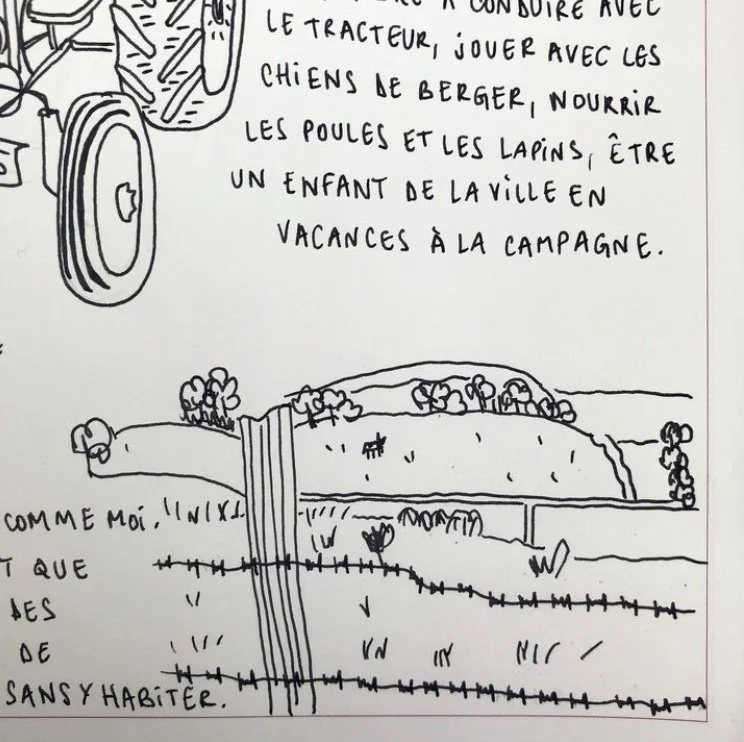 À CONDUIRE AVEC
LE TRACTEUR, JOUER AVEC LES
CHIENS DE BERGER, NOURRIR
LES POULES ET LES LAPINS, ÊTRE
UN ENFANT DE LA VILLE EN
VACANCES À LA CAMPAGNE.
COMME MOI.
QUE
DES
DE
SANS Y HABITER.